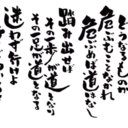 どうなるものか
危ぶむことなかれ
危ぶめば道はなし
踏み出せば
その一歩が道となり
その一足が道となる
迷わず行けよ